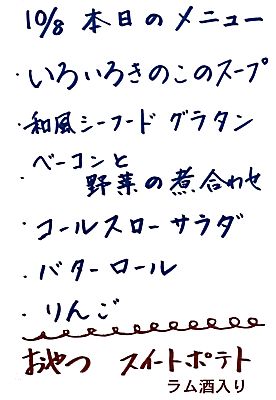 10/8 本日のメニュー
・いろいろきのこのスープ
・和風シーフードグラタン
・ベーコンと
野菜の煮合わせ
・コールスローサラダ
・バターロール
・りんご
おやつ スイートポテト
ラム酒入り